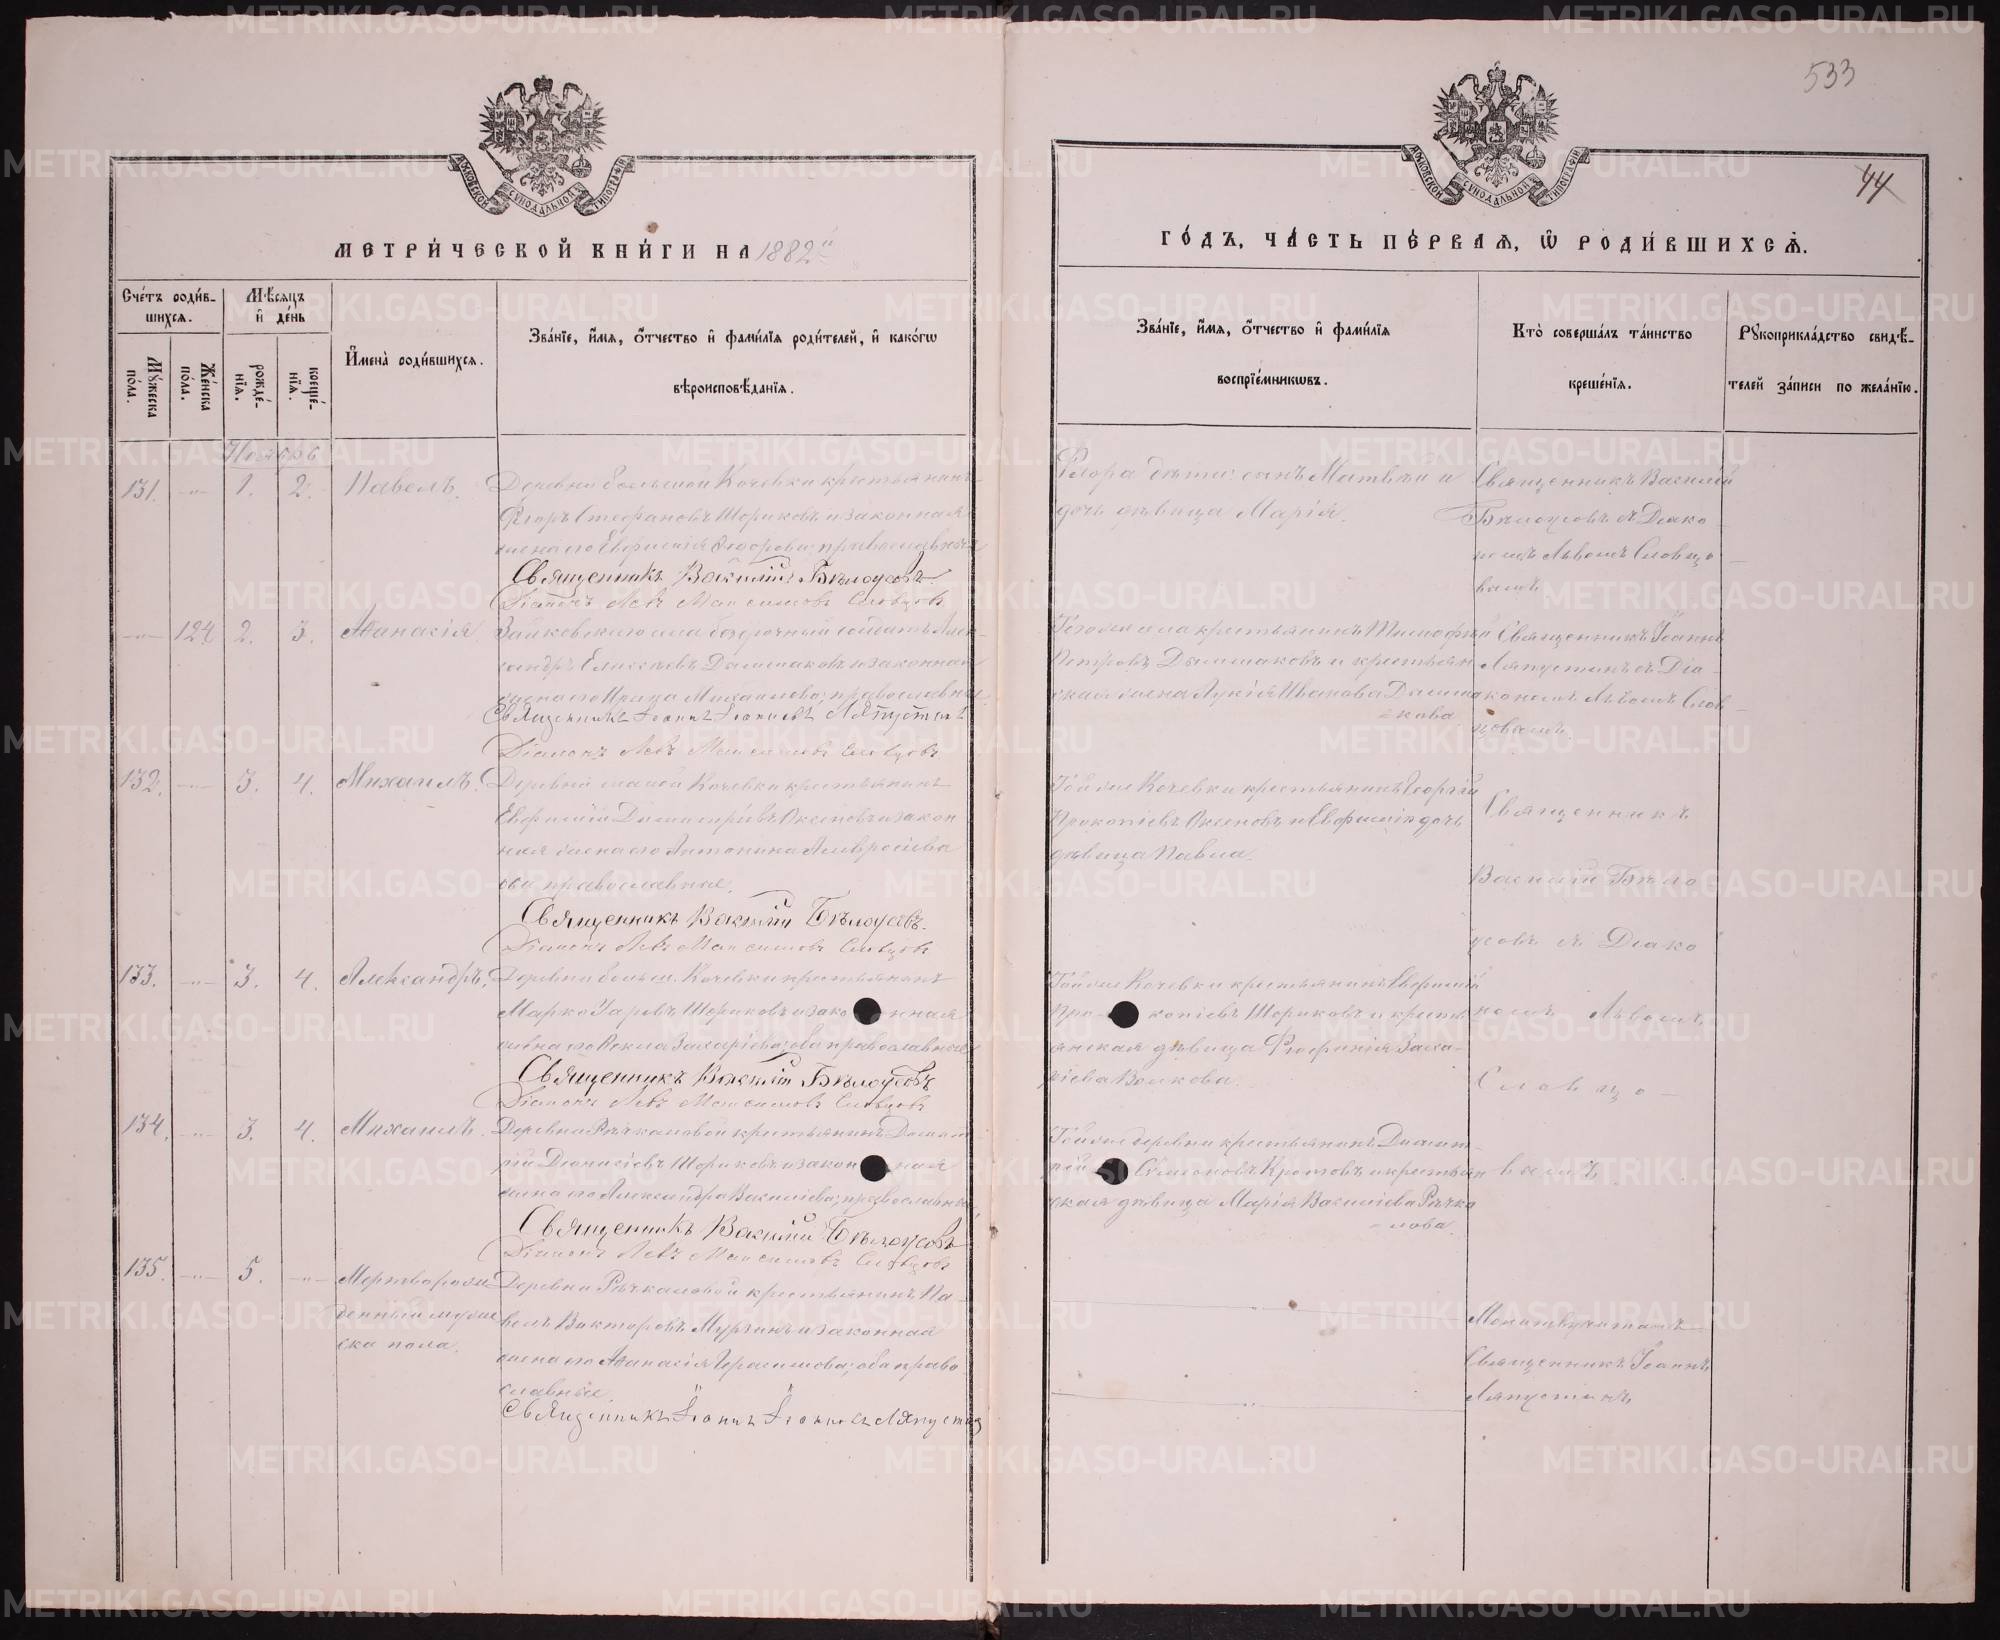 533
44
МОСКОВСКОЙ СУНОДАЛЬНОЙ ТИПОГРАФІИ
МОСКОВСКОЙ СУНОДАЛЬНОЙ ТИПОГРАФІИ
МЕТРИ́ЧЕСКОЙ КНИ́ГИ НА 1882й
ГО́ДЪ, ЧА́СТЬ ПЕ́РВАѦ, Ѿ РОДИ́ВШИХСѦ.
Сче́тъ роди́в-
шихсѧ.
Мѣ́сѧцъ
и҆ де́нь
Мꙋ́жеска
по́ла.
Же́нска
по́ла.
рожде́-
нїѧ.
креще́-
нїѧ.
И҆мена̀ роди́вшихсѧ.
Зва́нїе, и҆́мѧ, ѻ҆́тчество и҆ фами́лїѧ роди́телей, и҆ како́гѡ
вѣроисповѣ́данїѧ.
Зва́нїе, и҆́мѧ, ѻ҆́тчество и҆ фами́лїѧ
воспрїе́мникѡвъ.
Кто̀ соверша́лъ та́инство
креще́нїѧ.
Рꙋкоприкла́дство свидѣ́-
телей за́писи по жела́нїю.
Ноябрь
131. -"- 1. 2. Павелъ.
Деревни большой Кочевки крестьянинъ
Егоръ Стефановъ Шориковъ и законная
жена его Евфимія Ѳедорова; православные
Священникъ Василій Бѣлоусовъ.
Діаконъ Левъ Максимовъ Словцовъ
Флора дѣти: сынъ Матвѣй и
дочь дѣвица Марія.
Священникъ Василій
Бѣлоусовъ съ Діако-
номъ Львомъ Словцо-
вымъ.
-"- 124 2. 3. Аѳанасія
Зайковскаго села безсрочный солдатъ Алек-
сандръ Елисѣевъ Дымшаковъ и законная
жена его Ирина Михаилова; православные.
Священникъ Іоаннъ Іоанновъ Ляпустинъ
Діаконъ Левъ Максимовъ Словцовъ
Тогоже села крестьянинъ Тимофѣй
Петровъ Дымшаковъ и крестьян
ская жена Лукія Иванова Дымша
кова
Священникъ Іоаннъ
Ляпустинъ съ Діа-
кономъ Львомъ Слов-
цовымъ.
132. -"- 3. 4. Михаилъ.
Деревни малой Кочевки крестьянинъ
Евфимій Димитріевъ Аксеновъ и закон
ная жена его Антонина Амвросіева
оба православные.
Священникъ Василій Бѣлоусовъ.
Діаконъ Левъ Максимовъ Словцовъ
Тойже Кочевки крестьянинъ Георгій
Прокопіевъ Аксеновъ и Евфимія дочь
дѣвица Павла.
Священникъ
Василій Бѣло
усовъ съ Діако
номъ Львомъ
Словцо-
вымъ
133. -"- 3. 4. Александръ.
Деревни больш. Кочевки крестьянинъ
Марко Уаровъ Шориковъ и законная
жена его Ѳекла Захаріева; оба православные
Священникъ Василій Бѣлоусовъ
Діаконъ Левъ Максимовъ Словцовъ
Тойже Кочевки крестьянинъ Евфимій
Прокопіевъ Шориковъ и кресть
янская дѣвица Заха-
ріева Волкова.
134. -"- 3. 4. Михаилъ.
Деревни Рѣчкаловой крестьянинъ Димит-
рій Діонисіевъ Шориковъ и законная
жена его Александра Василіева; православные.
Священникъ Василій Бѣлоусовъ
Діаконъ Левъ Максимовъ Словцовъ
Тойже деревни крестьянинъ Димит-
рій Симоновъ Кротовъ и крестьян
ская дѣвица Марія Василіева Рѣчка
лова.
135. -"- 5. -"- Мертворож
денный муже
ска пола.
Деревни Рѣчкаловой крестьянинъ Па-
велъ Викторовъ Мурзинъ и законная
жена его Аѳанасія Герасимова; оба право
славные
Священникъ Іоаннъ Іоанновъ Ляпустинъ
Молитву читалъ
Священникъ Іоаннъ
Ляпустинъ